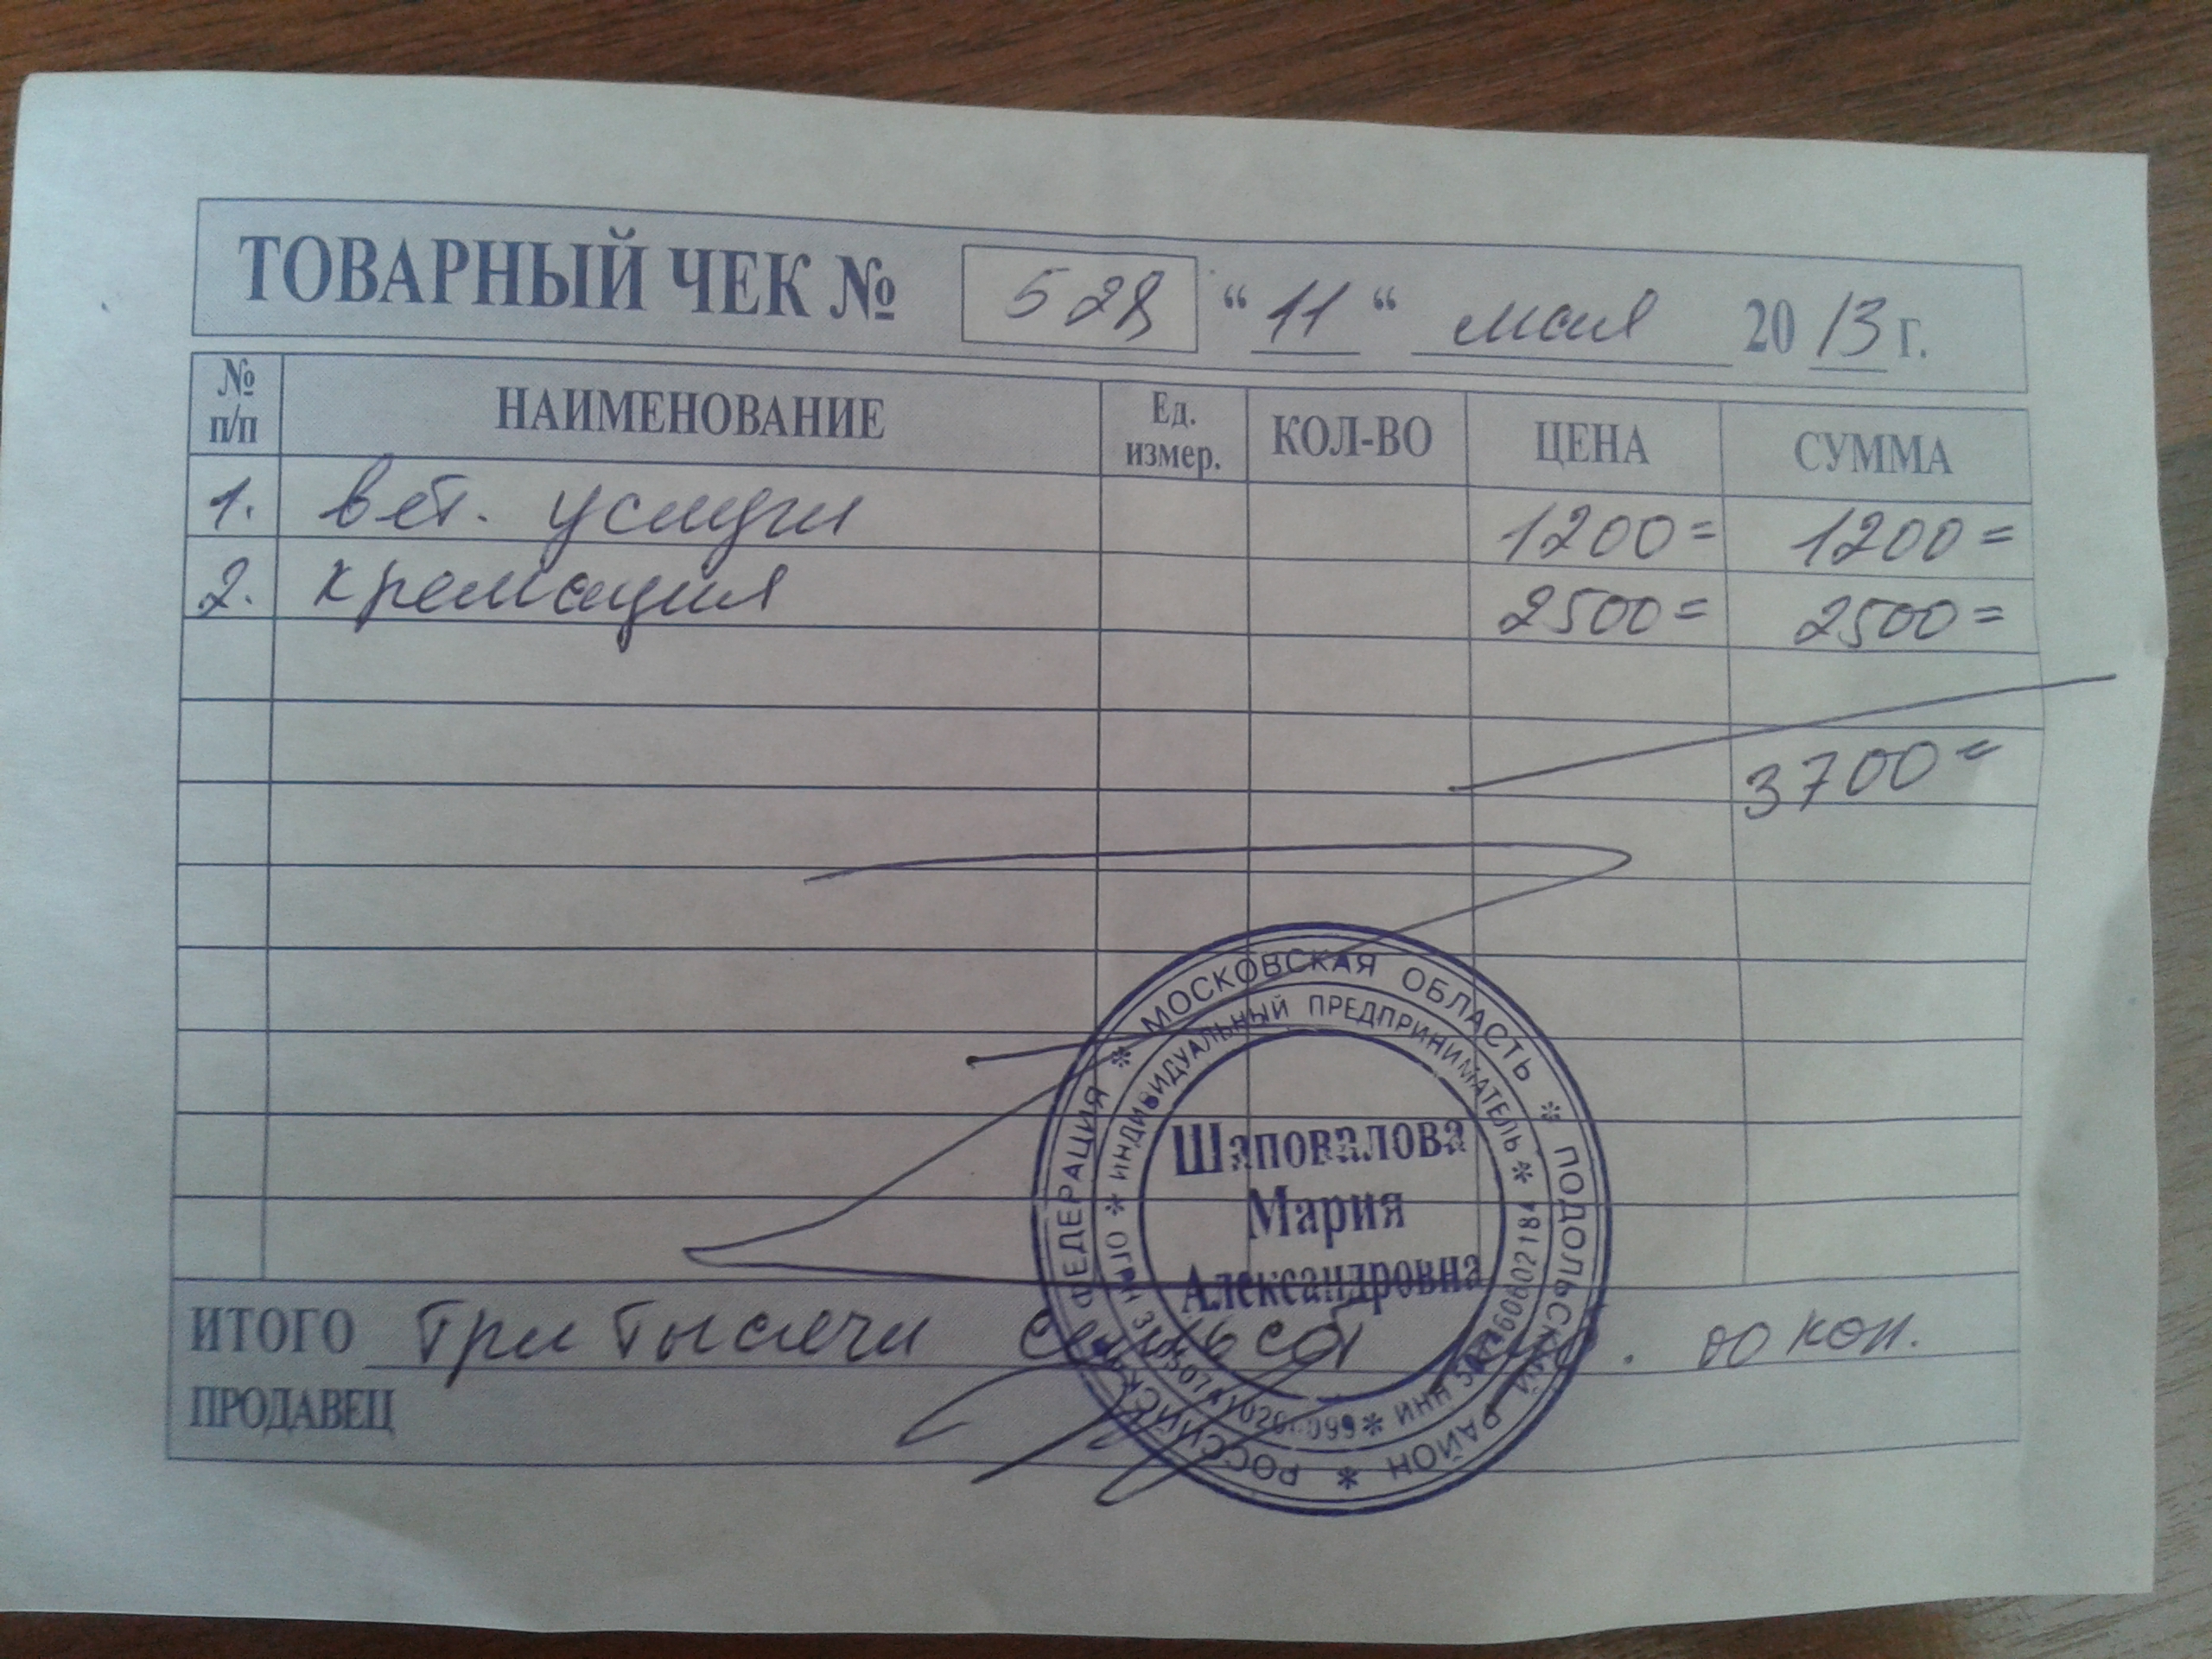 ТОВАРНЫЙ ЧЕК № 528 “11“ мая 2013 г.
№ п/п НАИМЕНОВАНИЕ Ед. измер. КОЛ-ВО ЦЕНА СУММА
1. вет. услуги 1200= 1200=
2. кремация 2500= 2500=
3700=
РОССИЙСКАЯ ФЕДЕРАЦИЯ * МОСКОВСКАЯ ОБЛАСТЬ * ПОДОЛЬСКИЙ РАЙОН *
* ИНДИВИДУАЛЬНЫЙ ПРЕДПРИНИМАТЕЛЬ * ИНН * ОГРН
Шаповалова
Мария
Александровна
ИТОГО три тысячи семьсот руб. 00 коп.
ПРОДАВЕЦ